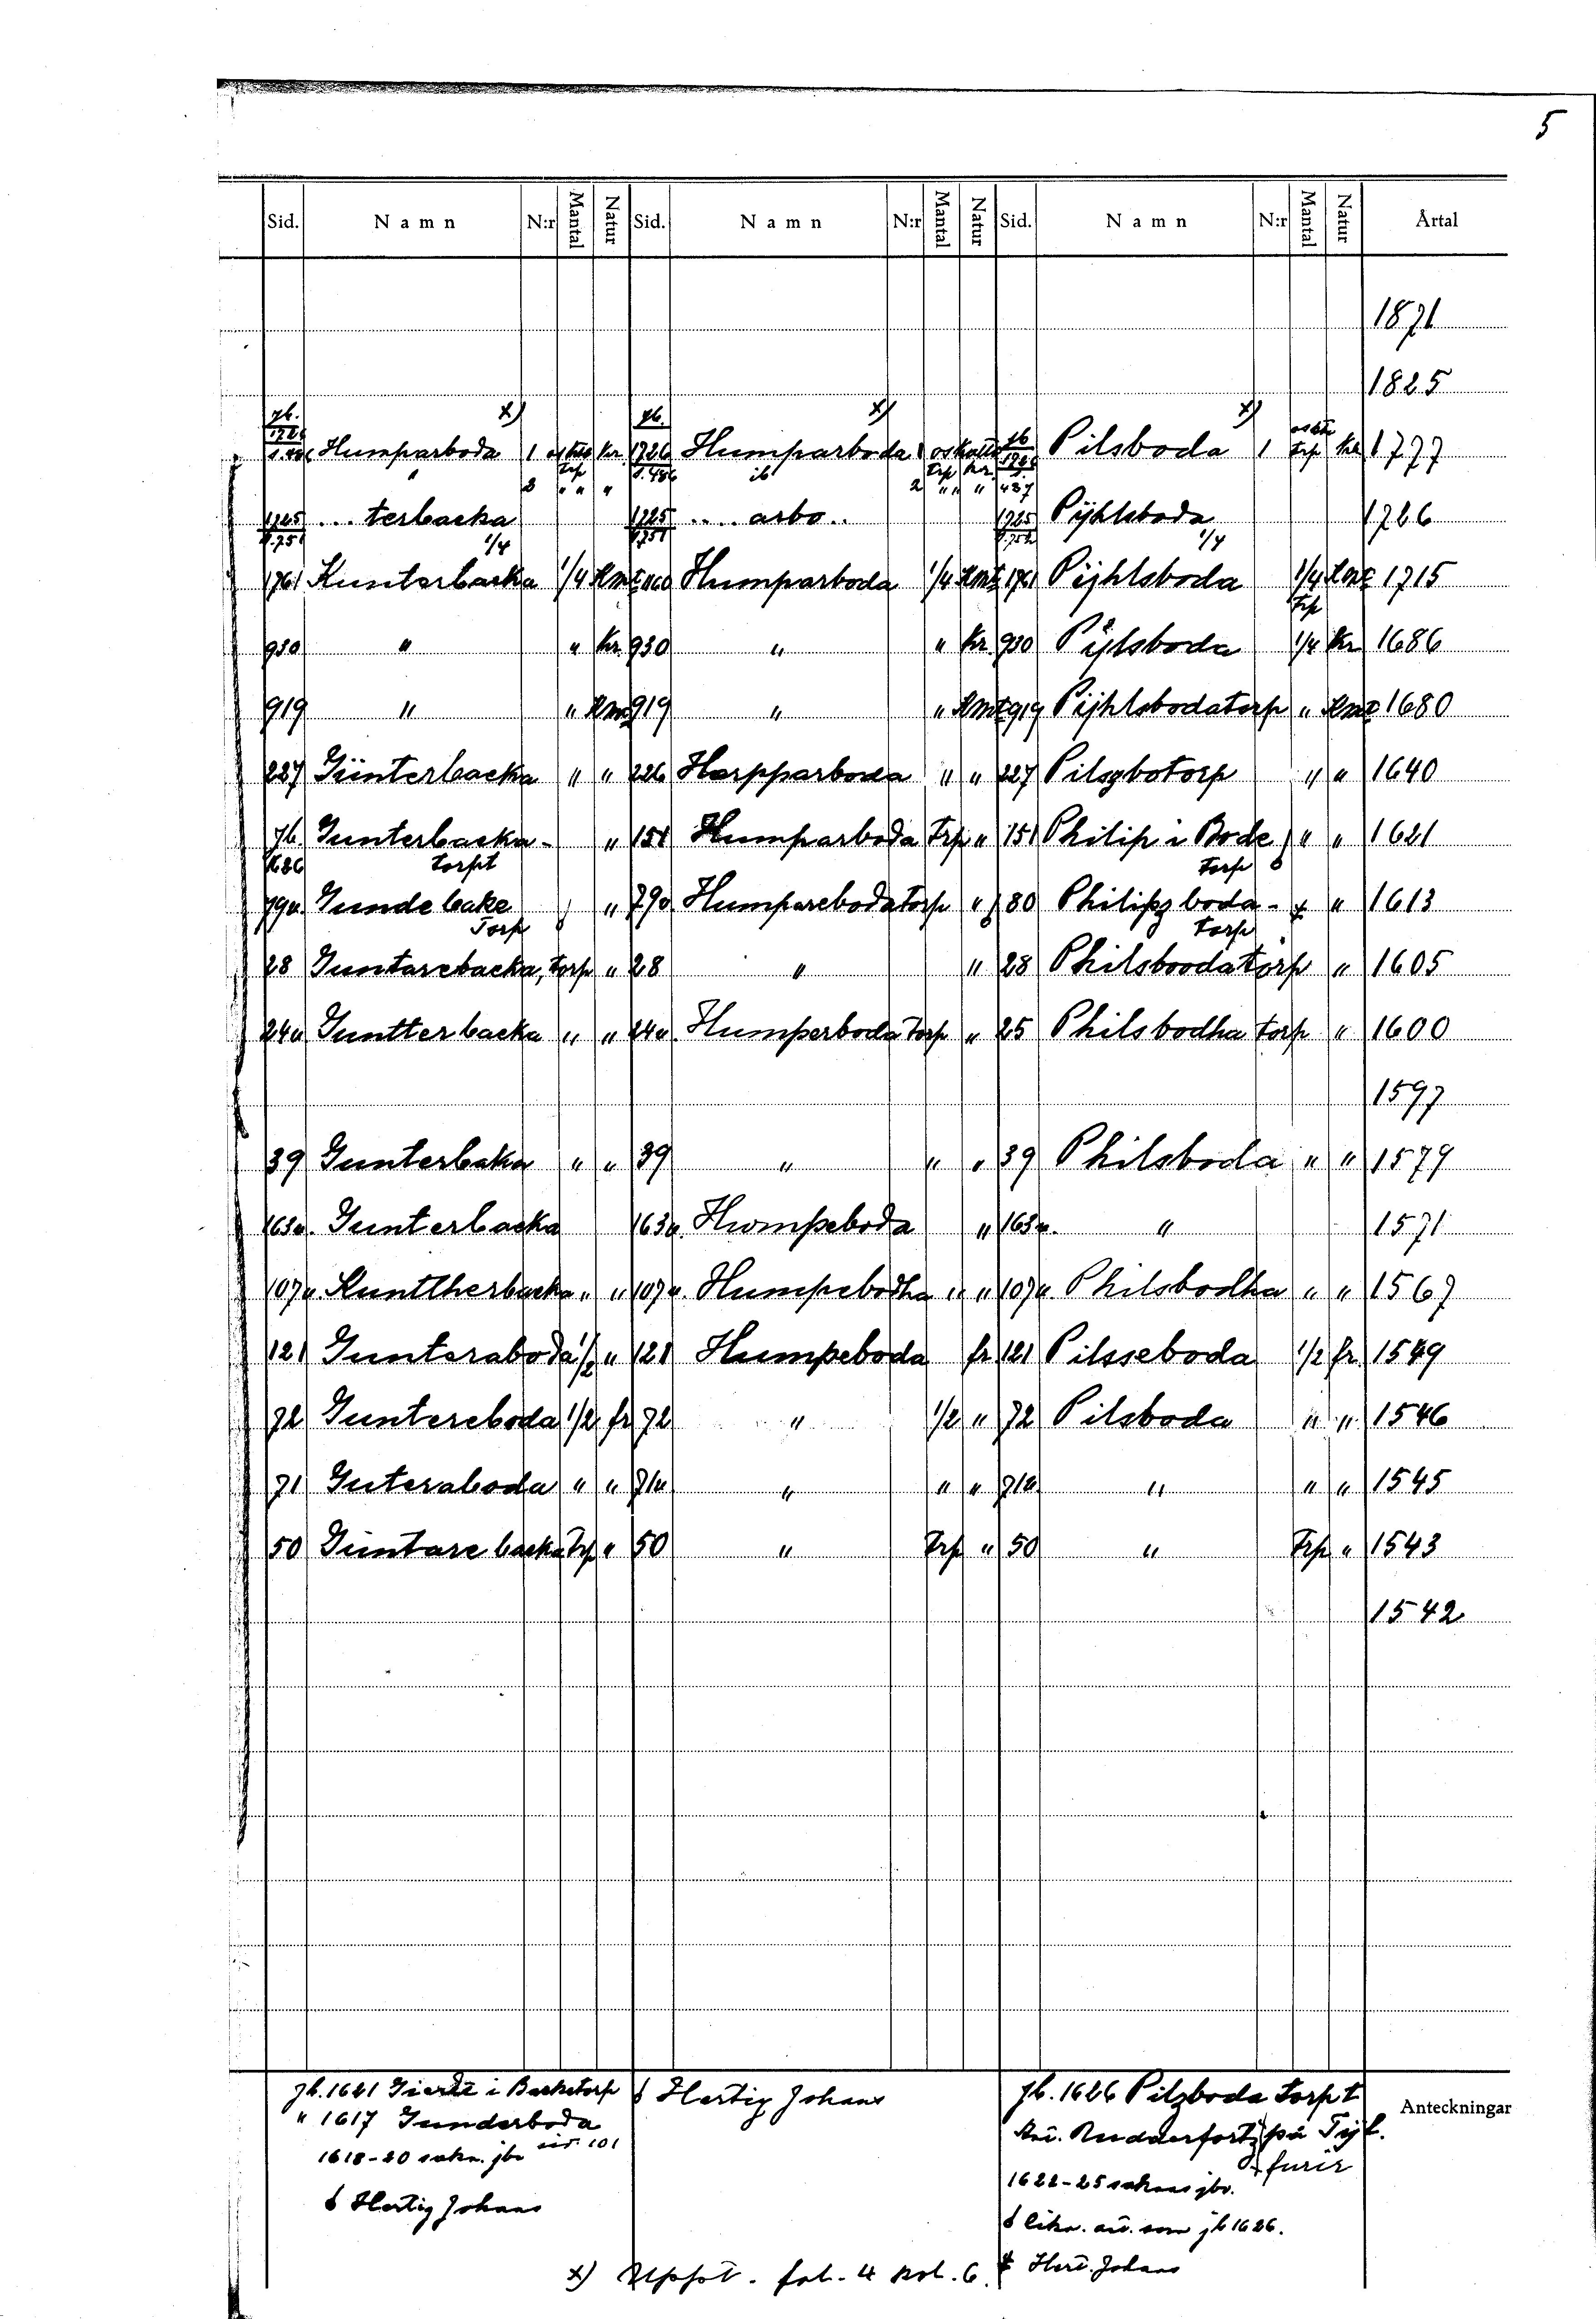 5
Sid. Namn N:r Mantal Natur Sid. Namn N:r Mantal Natur Sid. Namn N:r Mantal Natur Årtal
1871
1825
jb. x) jb. x) x)
1726 Humparboda 1 kr. 1726 Humparboda 1 oskatt jb 1726 Pilsboda 1 trp kr 1777
" 2 " " " s. 486 ib trp kr. 2 " " " 487
1725 ...terbacka 1725 ....arbo.. 1725 Pijhlsboda 1726
s. 751 1/4 s. 751 s. 752 1/4
1761 Kunterbacka 1/4 Kmt 1160 Humparboda 1/4 Kmt 1761 Pijhlsboda 1/4 Kmt 1715
trp
930 " " kr. 930 " " kr. 930 Pijlsboda 1/4 kr 1686
919 " " Kmt 919 " " Kmt 919 Pijhlsbodatorp " Kmt 1680
227 Günterbacka " " 226 Harpparboda " " 227 Pilszbotorp " " 1640
jb. Gunterbacka- " 151 Humparboda Trp " 151 Philip i Bode } " " 1621
1626 torpt torp
79u. Gunde bake } " 79u Humparebodatorp " } 80 Philipz boda - " 1613
Torp torp
28 Guntarebacka, torp " 28 " " 28 Philsboodatorp " 1605
24u Guntterbacka " " 24u. Humperboda torp " 25 Philsbodha torp " 1600
1597
39 Gunterbaka " " 39 " " " 39 Philsboda " " 1579
163u. Gunterbacka 163u. Humpeboda " 163u. " 1571
107u. Kunttherbacka " " 107u. Humpebodha " " 107u. Philsbodha " " 1567
121 Gunteraboda 1/2 " 121 Humpeboda fr 121 Pilsseboda 1/2 fr. 1549
72 Guntereboda 1/2 fr 72 " 1/2 " 72 Pilsboda " " 1546
71 Guteraboda " " 71u " " " 71u " " " 1545
50 Guntare backa Trp " 50 " Trp " 50 " Trp " 1543
1542
jb. 1641 i Backetorp
" 1617 Gunderboda
sid. 101
1618-20 sakn. jbr
Hertig Johans
Hertig Johans
jb. 1626 Pilzboda Torpt
på Tijl.
furir
1622-25 saknas jbr.
likn. ant. som jb 1626.
Hert. Johans
Anteckningar
x) Uppt. fol. 4 kol. 6.